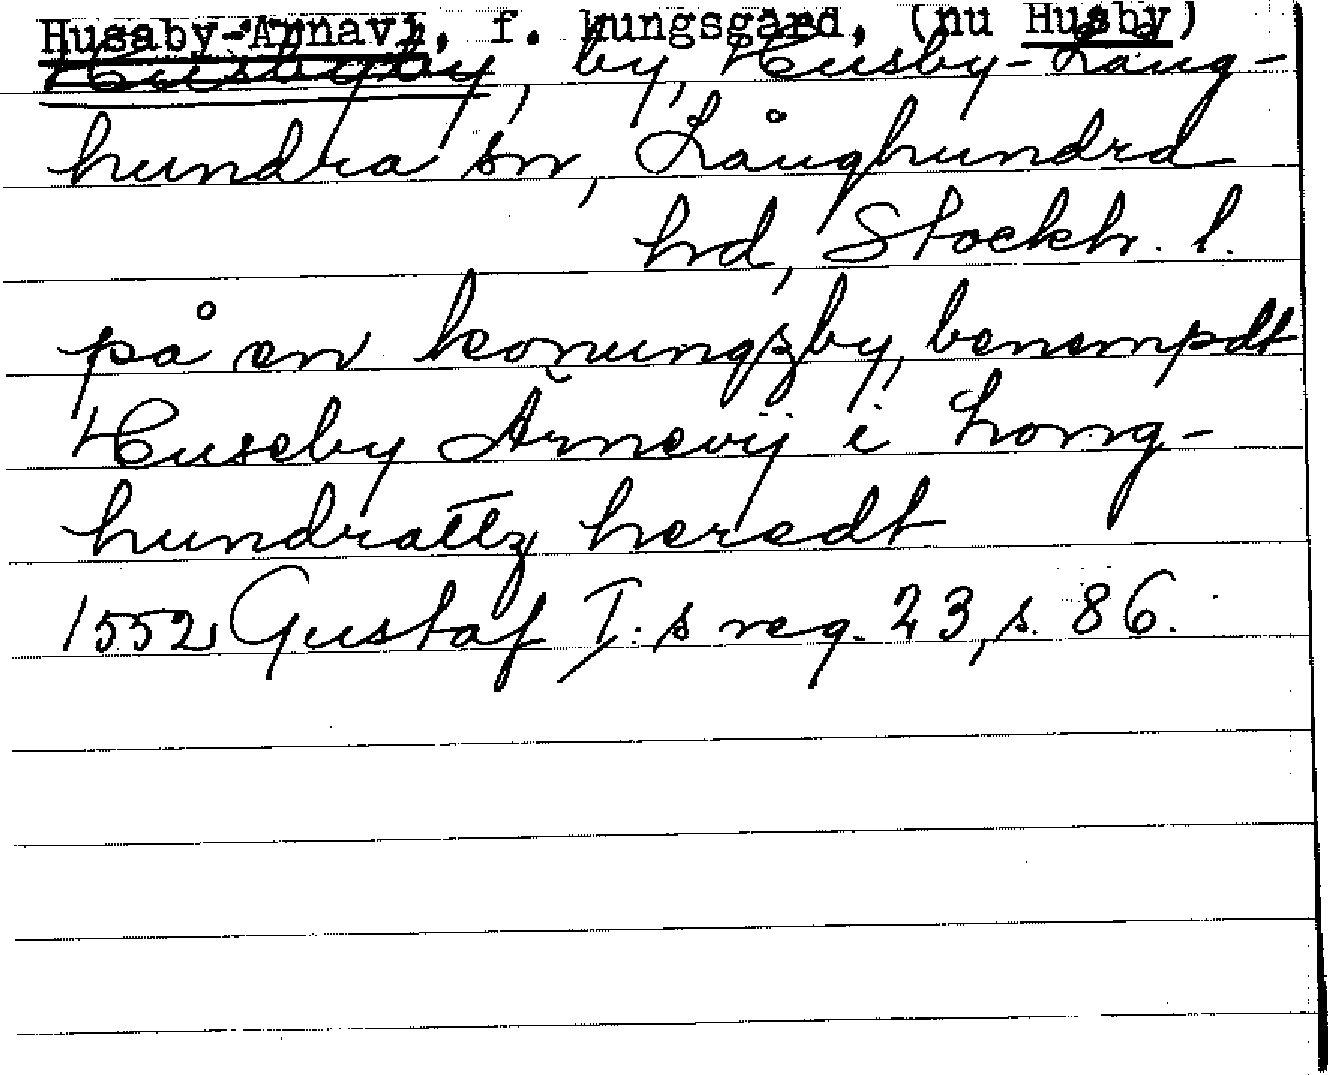 Husaby-Arnavi, f. kungsgård, (nu Husby)
Husbyby, by, Husby-Lång-
hundra sn, Långhundra
hrd, Stockh. l.
på en konungzby, benempdt
Huseby Ärnevij i Long-
hundrattz heredt
1552 Gustaf I:s reg. 23, s. 86.